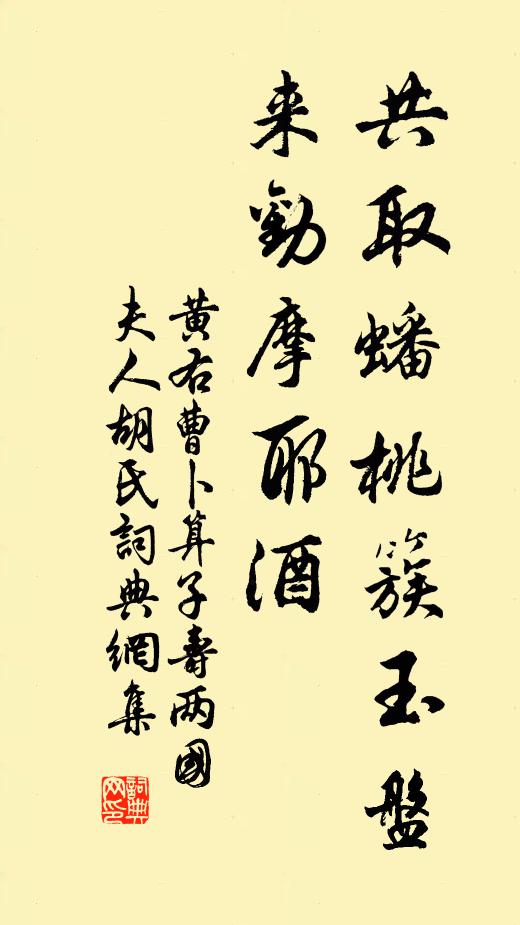 共取蟠桃簇玉盤
来勸摩耶酒
黄右曹卜算子壽两國
夫人胡氏詞典網集
詞典
网印